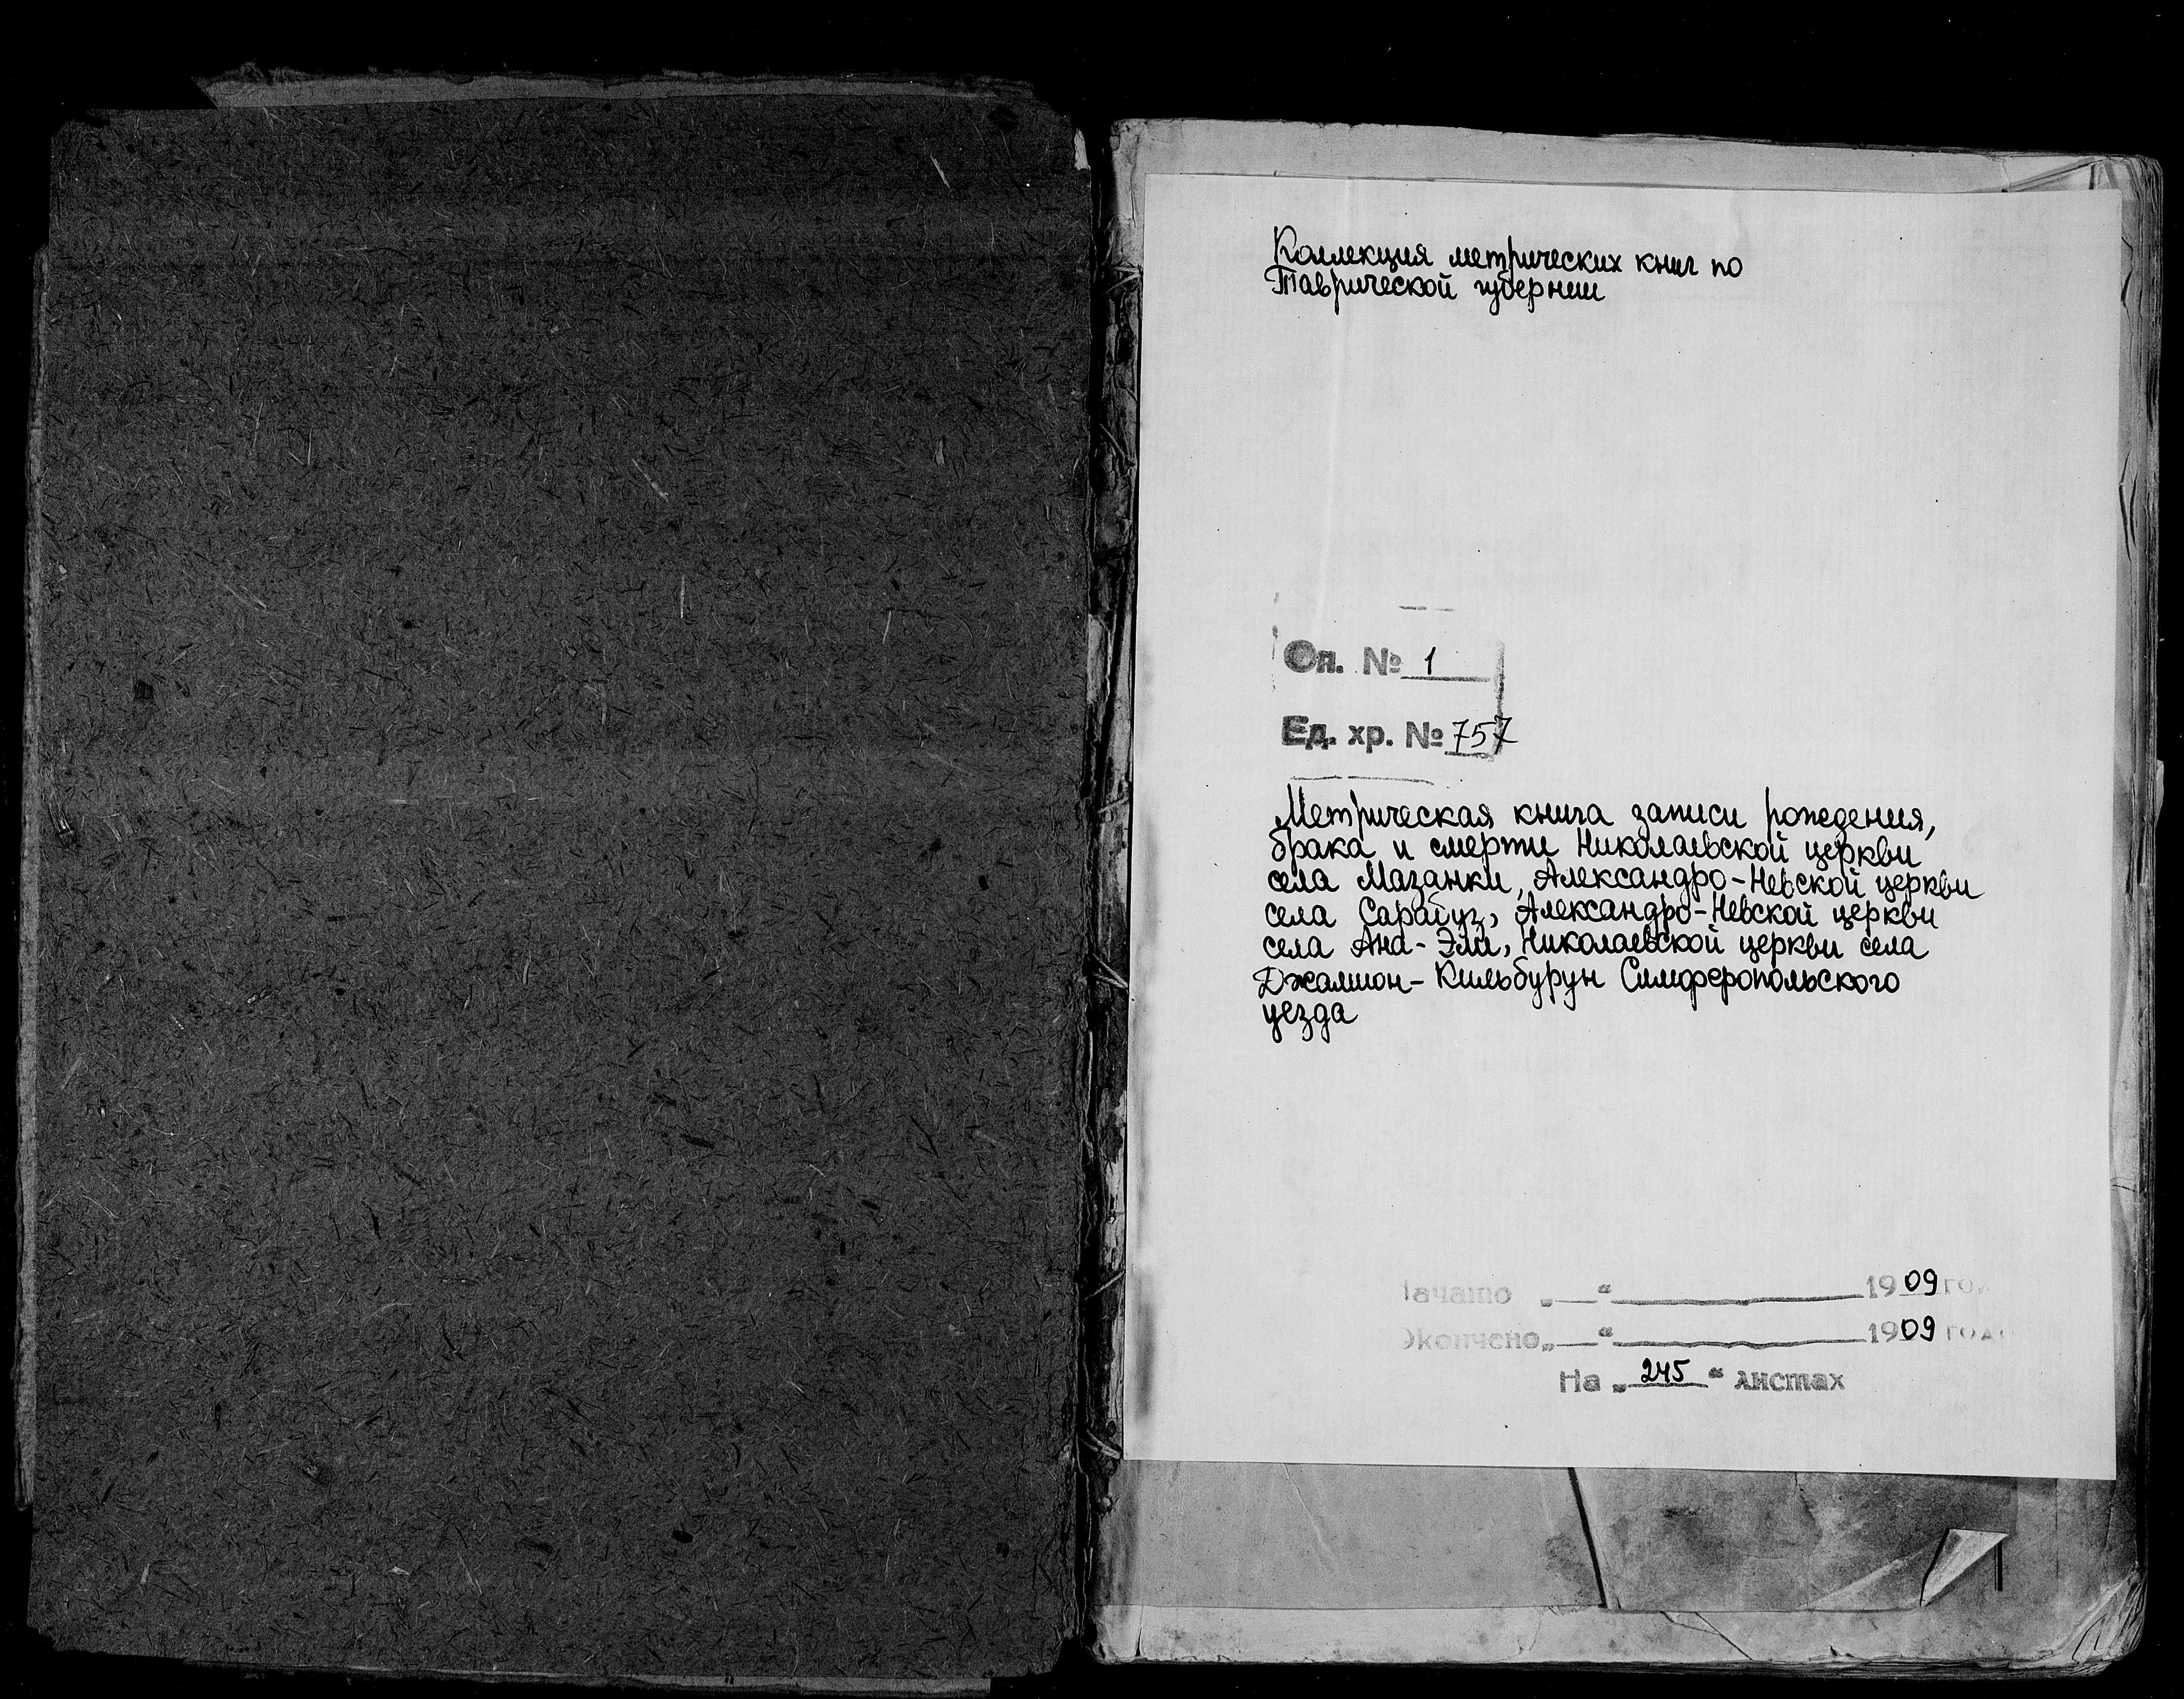 Коллекция метрических книг по
Таврической губернии
Оп. № 1
Ед. хр. № 757
Метрическая книга записи рождения,
брака и смерти Николаевской церкви
села Мазанки, Александро-Невской церкви
села Сарабуз, Александро-Невской церкви
села Ана-Эли, Николаевской церкви села
Джалмон-Кильбурун Симферопольского
уезда
Начато „__“ 1909 год
Окончено „__“ 1909 года
На „245“ листах